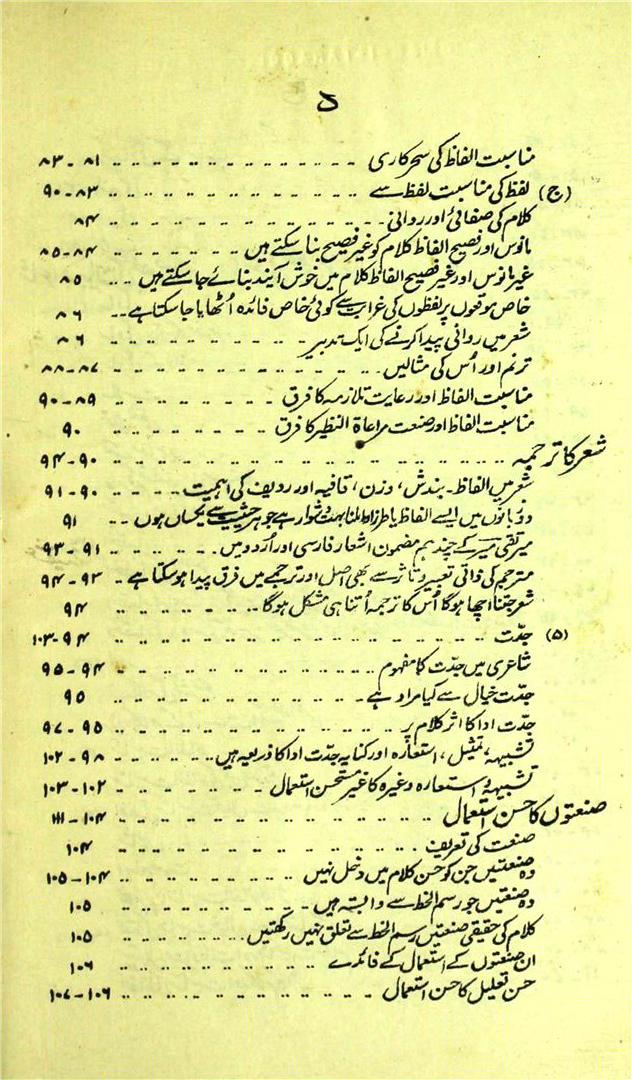 د
مناسبت الفاظ کی سحر کاری ۸۱-۸۳
(ج) لفظ کی مناسبت لفظ سے ۸۳-۹۰
کلام کی صفائی اور روانی ۸۴
مانوس اور فصیح الفاظ کلام کو غیر فصیح بنا سکتے ہیں ۸۴-۸۵
غیر مانوس اور غیر فصیح الفاظ کلام میں خوش آیند بنائے جا سکتے ہیں ۸۵
خاص موقعوں پر لفظوں کی غرابت سے کوئی خاص فائدہ اُٹھایا جا سکتا ہے ۸۶
شعر میں روانی پیدا کرنے کی ایک تدبیر ۸۶
ترنم اور اُس کی مثالیں ۸۷-۸۸
مناسبت الفاظ اور رعایت تلازمہ کا فرق ۸۹-۹۰
مناسبت الفاظ اور صنعت مراعاۃ النظیر کا فرق ۹۰
شعر کا ترجمہ ۹۰-۹۴
شعر میں الفاظ۔ بندش، وزن، قافیہ اور ردیف کی اہمیت ۹۰-۹۱
دو زبانوں میں ایسے الفاظ یا طرز ادا ملنا بہت دشوار ہے جو ہر حیثیت سے یکساں ہوں ۹۱
میر تقی میر کے چند ہم مضمون اشعار فارسی اور اُردو میں ۹۱-۹۳
مترجم کی ذاتی تعبیر و تاثر سے بھی اصل اور ترجمے میں فرق پیدا ہو سکتا ہے ۹۳-۹۴
شعر جتنا اچھا ہوگا اُس کا ترجمہ اُتنا ہی مشکل ہوگا ۹۴
(۵) جدّت ۹۴-۱۰۳
شاعری میں جدّت کا مفہوم ۹۴-۹۵
جدّت خیال سے کیا مراد ہے ۹۵
جدّت ادا کا اثر کلام پر ۹۵-۹۷
تشبیہ، تمثیل، استعارہ اور کنایہ جدّت ادا کا ذریعہ ہیں ۹۸-۱۰۲
تشبیہ و استعارہ وغیرہ کا غیر مستحسن استعمال ۱۰۲-۱۰۳
صنعتوں کا حسن استعمال ۱۰۴-۱۱۱
صنعت کی تعریف ۱۰۴
وہ صنعتیں جن کو حسن کلام میں دخل نہیں ۱۰۴-۱۰۵
وہ صنعتیں جو رسم الخط سے وابستہ ہیں ۱۰۵
کلام کی حقیقی صنعتیں رسم الخط سے تعلق نہیں رکھتیں ۱۰۵
ان صنعتوں کے استعمال کے فائدے ۱۰۶
حسن تعلیل کا حسن استعمال ۱۰۶-۱۰۷